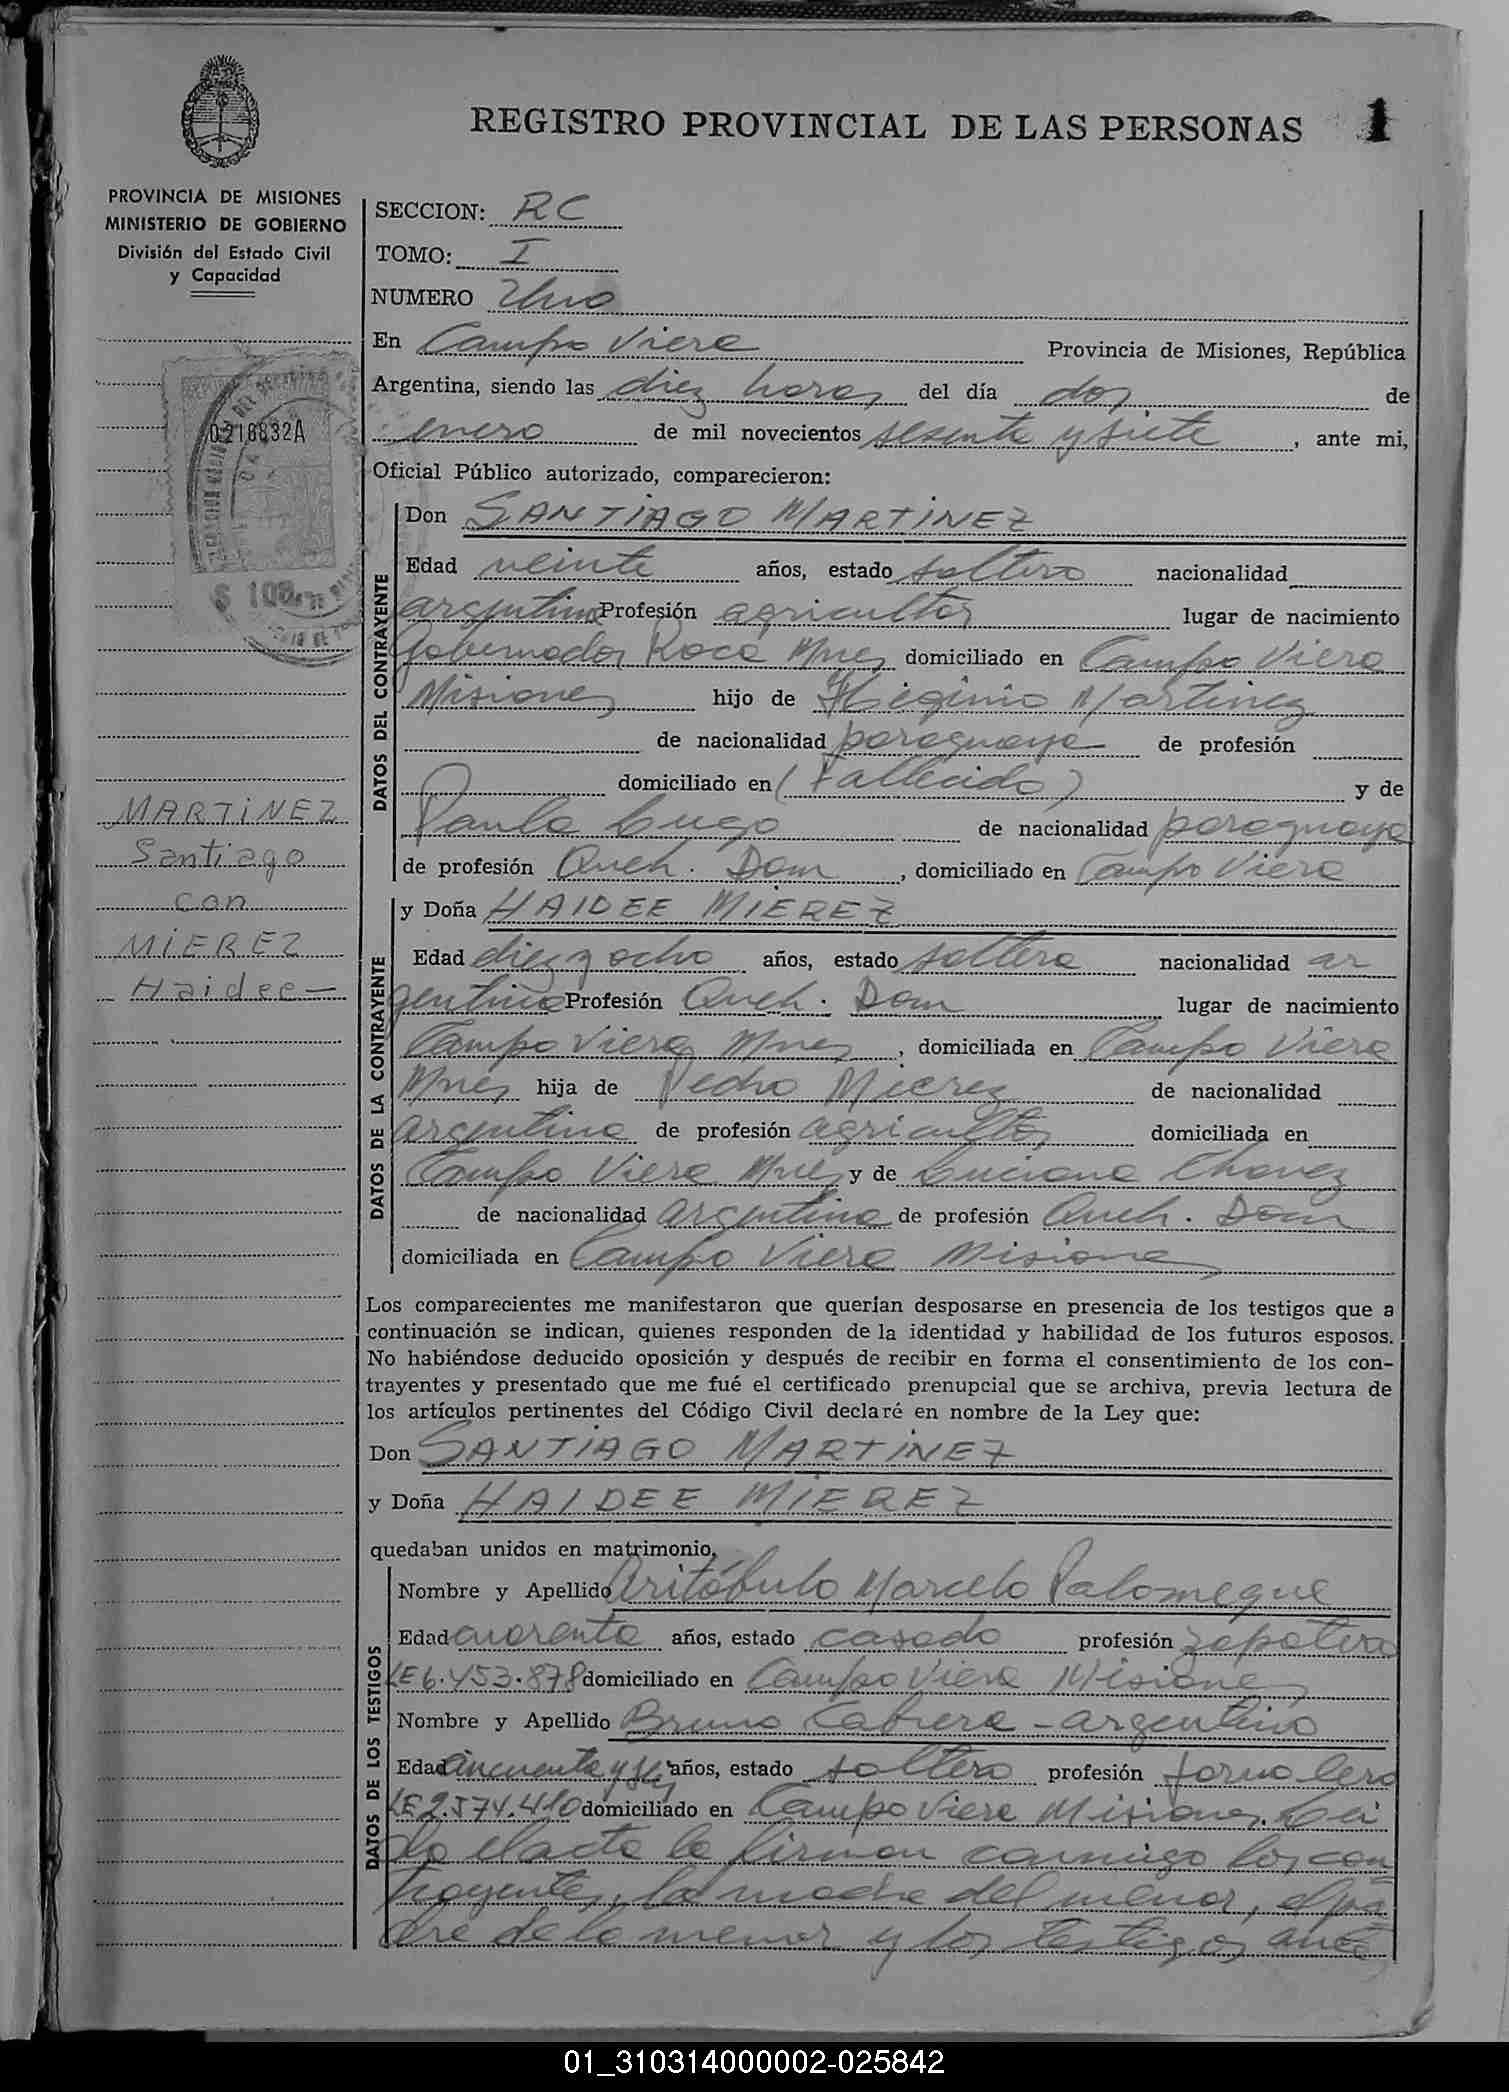 REGISTRO PROVINCIAL DE LAS PERSONAS 1
PROVINCIA DE MISIONES
MINISTERIO DE GOBIERNO
División del Estado Civil
y Capacidad
0216832A
$ 100
MARTINEZ
Santiago
con
MIEREZ
Haidee—
SECCION: RC
TOMO: I
NUMERO Uno
En Campo Viera Provincia de Misiones, República
Argentina, siendo las diez horas del día dos de
enero de mil novecientos sesenta y siete, ante mi,
Oficial Público autorizado, comparecieron:
DATOS DEL CONTRAYENTE
Don SANTIAGO MARTINEZ
Edad veinte años, estado soltero nacionalidad
argentina Profesión agricultor lugar de nacimiento
Gobernador Roca Mnes domiciliado en Campo Viera
Misiones hijo de Higinio Martinez
de nacionalidad paraguaya de profesión
domiciliado en (Fallecido) y de
Paula Lugo de nacionalidad paraguaya
de profesión Queh. Dom, domiciliado en Campo Viera
DATOS DE LA CONTRAYENTE
y Doña HAIDEE MIEREZ
Edad diez y ocho años, estado soltera nacionalidad ar
gentina Profesión Queh. Dom lugar de nacimiento
Campo Viera Mnes, domiciliada en Campo Viera
Mnes hija de Pedro Mierez de nacionalidad
argentina de profesión agricultor domiciliada en
Campo Viera Mnes y de Luciana Chavez
de nacionalidad argentina de profesión Queh. Dom
domiciliada en Campo Viera Misiones
Los comparecientes me manifestaron que querían desposarse en presencia de los testigos que a
continuación se indican, quienes responden de la identidad y habilidad de los futuros esposos.
No habiéndose deducido oposición y después de recibir en forma el consentimiento de los con-
trayentes y presentado que me fué el certificado prenupcial que se archiva, previa lectura de
los artículos pertinentes del Código Civil declaré en nombre de la Ley que:
Don SANTIAGO MARTINEZ
y Doña HAIDEE MIEREZ
quedaban unidos en matrimonio.
DATOS DE LOS TESTIGOS
Nombre y Apellido Aritóbulo Marcelo Palomeque
Edad cuarenta años, estado casado profesión zapatero
LE 6.453.878 domiciliado en Campo Viera Misiones
Nombre y Apellido Bruno Cabrera - argentino
Edad cincuenta y seis años, estado soltero profesión jornalero
LE 2.574.410 domiciliado en Campo Viera Misiones. Lei
do el acta la firman conmigo los con
trayentes, la madre del menor, el pa
dre de la menor y los testigos ante
01_310314000002-025842